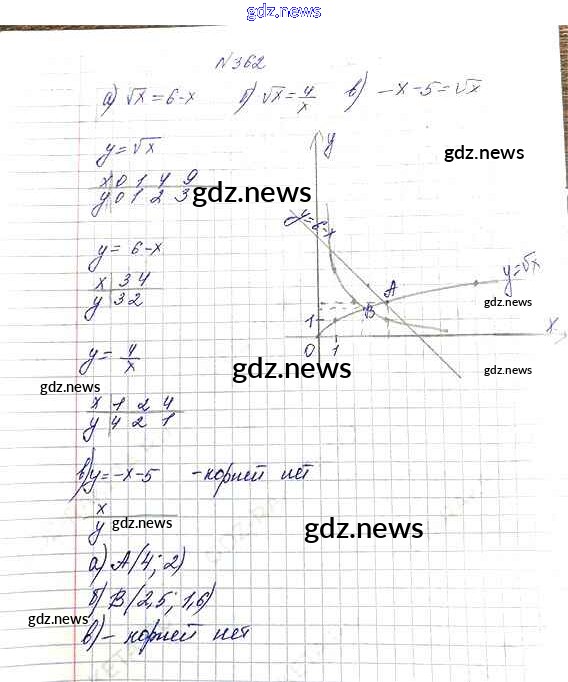 gdz.news
N362
а) √x = 6-x б) √x = 4/x в) -x-5 = √x
y = √x
x 0 1 4 9
y 0 1 2 3
gdz.news
gdz.news
y
y=6-x
y = 6-x
x 3 4
y 3 2
y=√x
A
B
gdz.news
1
x
0 1
y = 4/x
gdz.news
gdz.news
gdz.news
x 1 2 4
y 4 2 1
в) y = -x-5 - корней нет
x
y
gdz.news
gdz.news
а) A(4; 2)
б) B(2,5; 1,6)
gdz.news
в) - корней нет
gdz.news